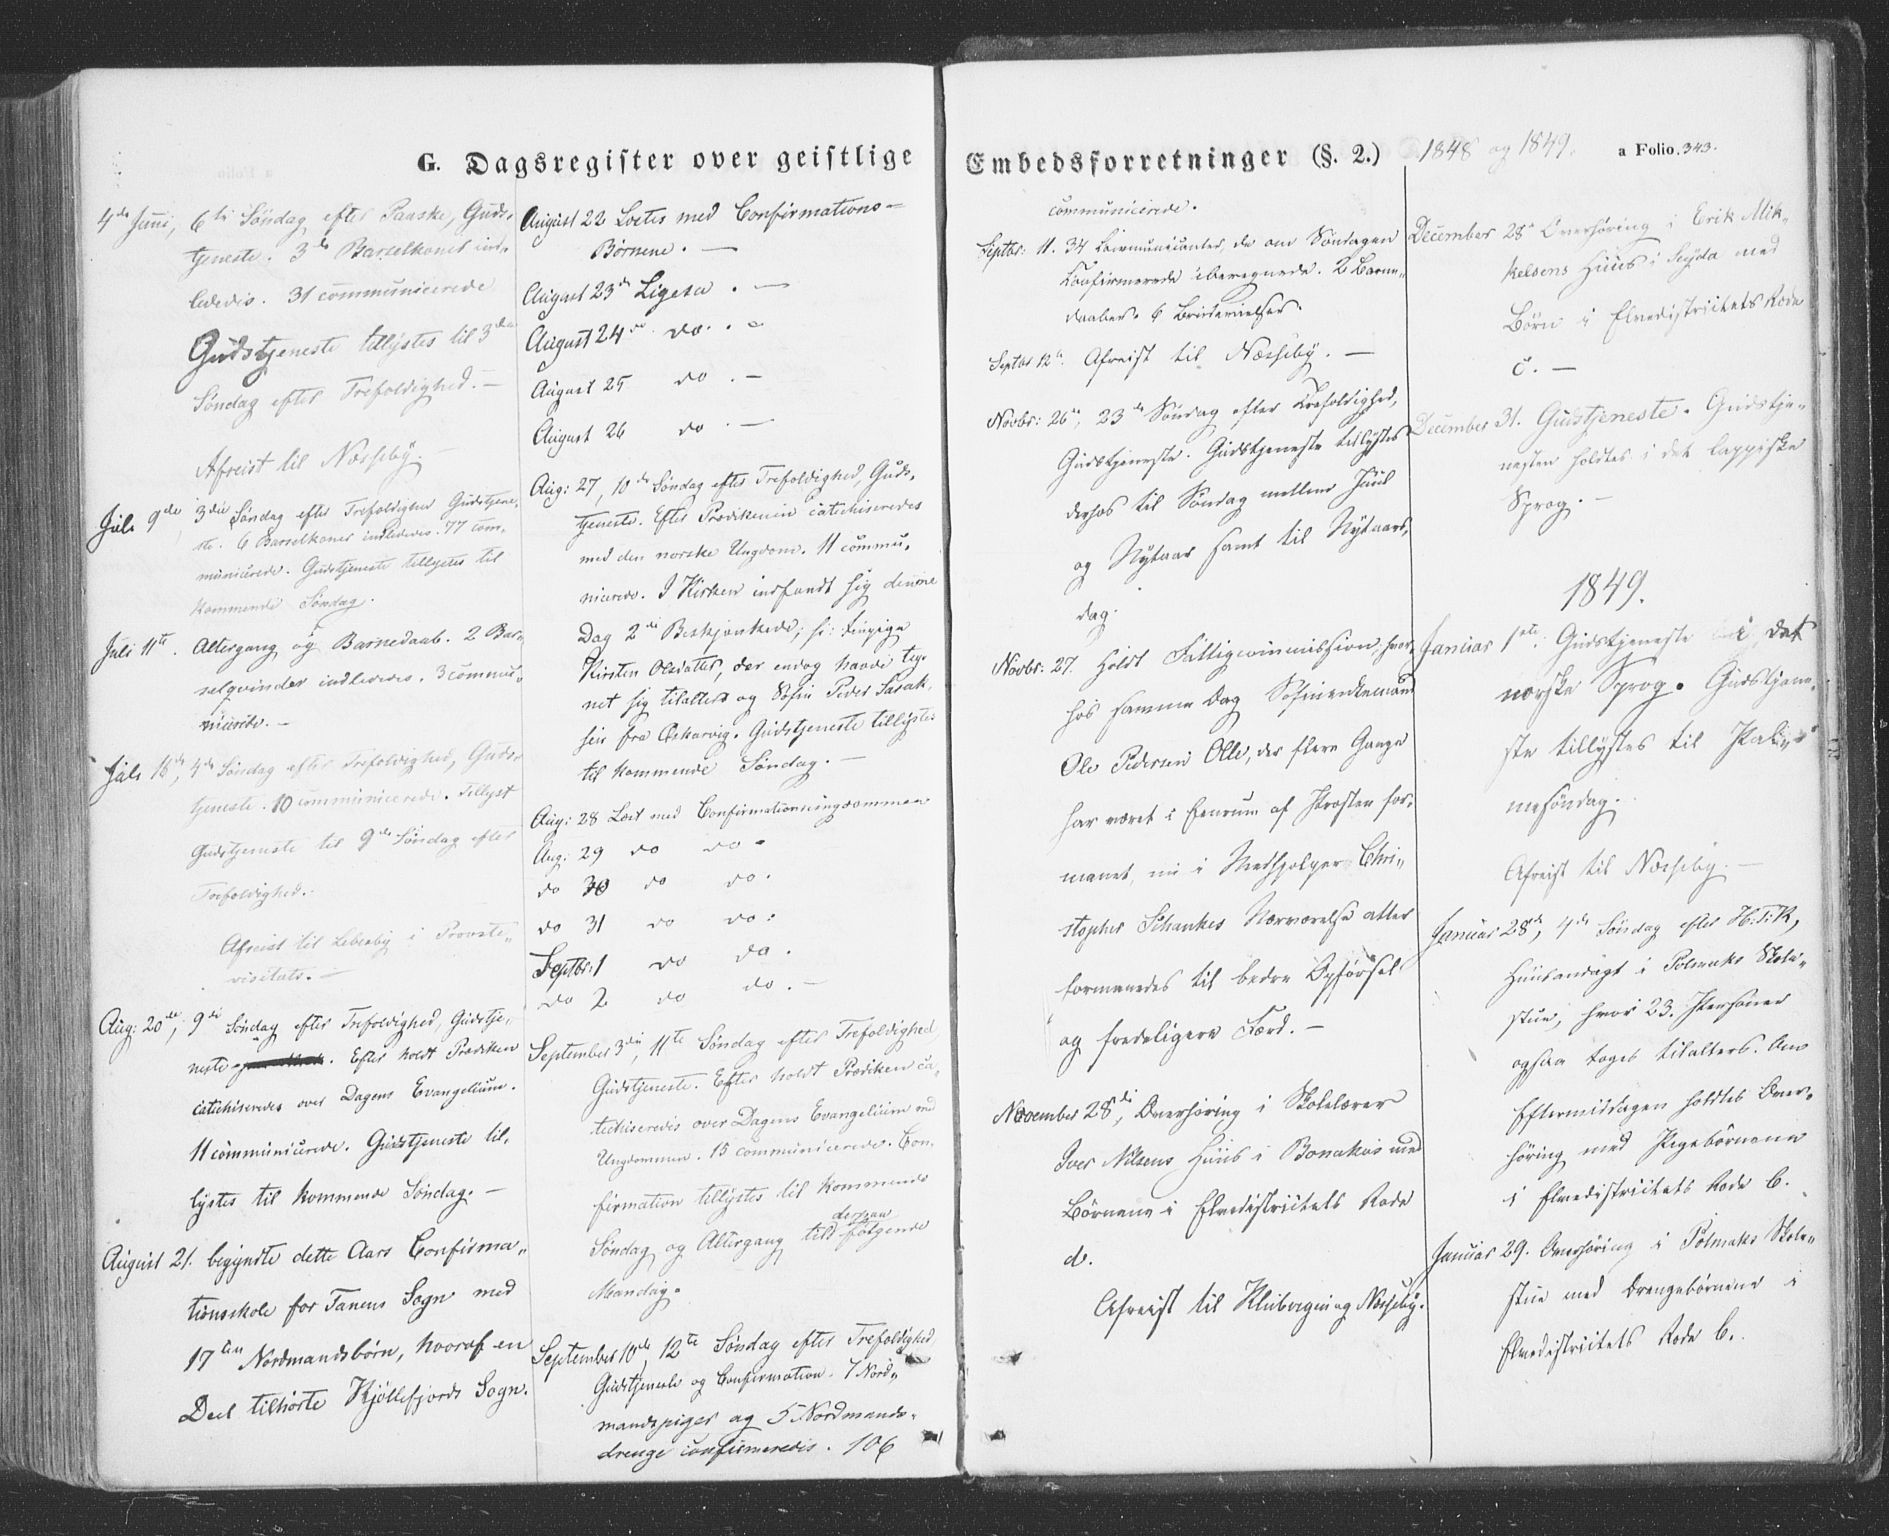 G. Dagsregister over geistlige
4de Juni, 6te Søndag efter Paaske, Guds-
tjeneste. 3de Barselkoner ind-
lededes. 31 communicerede
Gudstjeneste tillystes til 3die
Søndag efter Trefoldighed. —
Afreist til Næsseby. —
Juli 9de, 3die Søndag efter Trefoldighed Gudstjene-
ste. 6 Barselkoner indlededes. 77 com-
municerede. Gudstjeneste tillyses til
kommende Søndag.
Juli 11te. Altergang og Barnedaab. 2 Bar-
selqvinder indlededes. 3 commu-
nicerede. —
Juli 16de, 4de Søndag efter Trefoldighed, Guds-
tjeneste. 10 communicerede. Tillyst
Gudstjeneste til 9de Søndag efter
Trefoldighed.
Afreist til Lebesby i Provste-
visitats. —
Aug: 20de, 9de Søndag efter Trefoldighed, Gudstje-
neste. Efter holdt Prædiken
catechiseredes over Dagens Evangelium.
11 communicerede. Gudstjeneste til-
lystes til kommende Søndag. —
August 21. begyndte dette Aars Confirma-
tionsskole for Tanens Sogn med
17ten Nordmandsbørn, hvoraf en
Deel tilhørte Kjøllefjords Sogn.
August 22 Læstes med Confirmations-
Børnene. —
August 23de Ligesaa. —
August 24de do. —
August 25 do. —
August 26 do. —
Aug: 27, 10de Søndag efter Trefoldighed, Guds-
tjeneste. Efter Prædikenen catechiseredes
med den norske Ungdom. 11 commu-
nicerede. I Kirken indfandt sig denne
Dag 2de Beskjænkede;
Kirsten Olsdatter, der endog havde teg-
net sig tilalters og Peder Isak-
sen fra. Gudstjeneste tillystes
til kommende Søndag. —
Aug: 28 Læst med Confirmationsungdommen
Aug: 29 do do
do 30 do do.
do 31 do do.
Septbr: 1 do do.
do 2 do do. —
September 3die, 11te Søndag efter Trefoldighed
Gudstjeneste. Efter holdt Prædiken ca-
techiseredes over Dagens Evangelium med
Ungdommen. 15 communicerede. Con-
firmation tillystes til kommende
Søndag og Altergang til derpaa følgende
Mandag.
September 10de 12te Søndag efter Trefoldighed,
Gudstjeneste og Confirmation. 7 Nord-
mandspiger og 5 Nordmands-
drenge confirmeredes. 106
Embedsforretninger (§. 2.) 1848 og 1849. a Folio. 343.
communicerede.
Septbr: 11. 34 Communicanter, de om Søndagen
Confirmerede iberegnede. 2 Barne-
daaber. 6 Brudevielser.
Septbr 12te. Afreist til Næsseby. —
Novbr: 26de, 23de Søndag efter Trefoldighed,
Gudstjeneste. Gudstjeneste tillystes
derhos til Søndag mellem Juul
og Nytaar samt til Nytaars-
dag.
Novbr: 27. Holdt Fattigcommission, hvor-
hos samme Dag
Ole Pedersen Olle, der flere Gange
har været i Eenrum af Præsten for-
manet, nu i Medhjelper Chri-
stopher Schankes Nærværelse atter
formanedes til bedre Opførsel
og fredeligere Færd. —
November 28de, Overhøring i Skolelærer
Iver Nilsens Huus i Bonakas med
Børnene i Elvedistriktets Rode
d.
Afreist til Klubvigen og Næsseby.
December 28de Overhøring i Erik Mik-
kelsens Huus i Seyda med
Børn i Elvedistriktets Rode
c. —
December 31. Gudstjeneste. Gudstje-
nesten holdtes i det lappiske
Sprog. —
1849.
Januar 1ste. Gudstjeneste i det
norske Sprog. Gudstjene-
ste tillystes til Pal-
mesøndag.
Afreist til Næsseby. —
Januar 28de, 4de Søndag efter H: 3: K,
Huusandagt i Polmaks Skole-
stue, hvor 23 Personer
ogsaa toges tilalters. Om
Eftermiddagen holdtes Over-
høring med Pigebørnene
i Elvedistriktets Rode b.
Januar 29. Overhøring i Polmaks Skole-
stue med Drengebørnene i
Elvedistriktets Rode b.